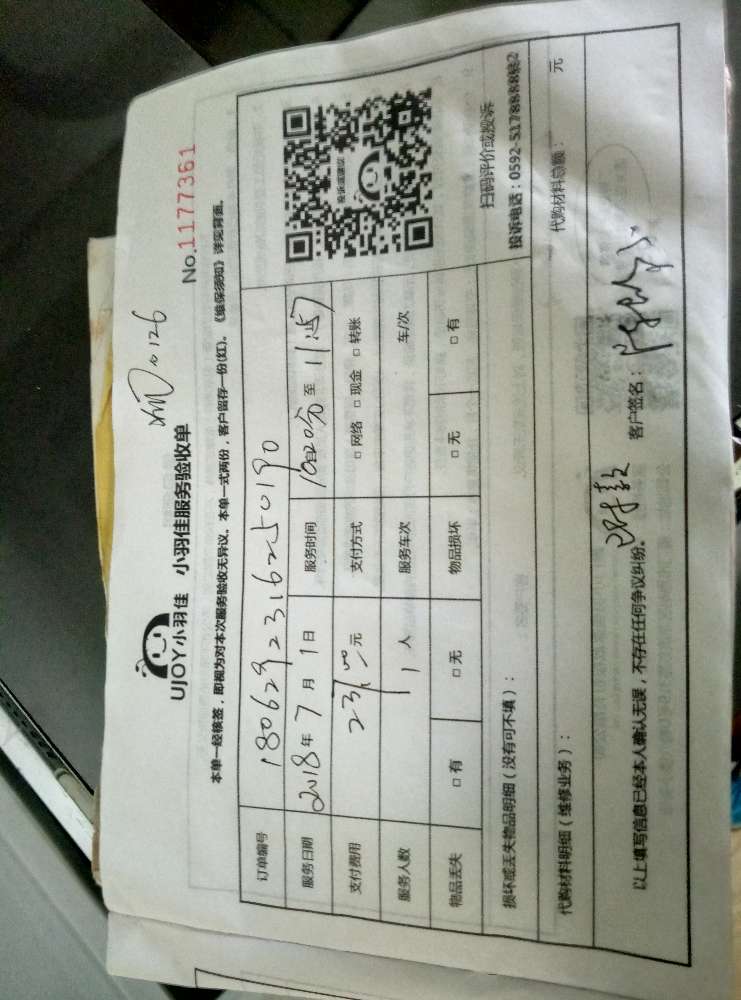 UJOY小羽佳 小羽佳服务验收单
No.1177361
本单一经核签，即视为对本次服务验收无异议。本单一式两份，客户留存一份(红)。《维保须知》详见背面。
订单编号 1806292316250190
服务日期 2018年7月1日 服务时间 至
支付费用 元 支付方式 □网络 □现金 □转账
服务人数 1人 服务车次 车/次
物品丢失 □有 □无 物品损坏 □无 □有
投诉或建议
扫码评价或投诉
投诉电话：0592-5178888转2
损坏或丢失物品明细（没有可不填）：
代购材料明细（维修业务）： 代购材料总额： 元
以上填写信息已经本人确认无误，不存在任何争议纠纷。 客户签名：